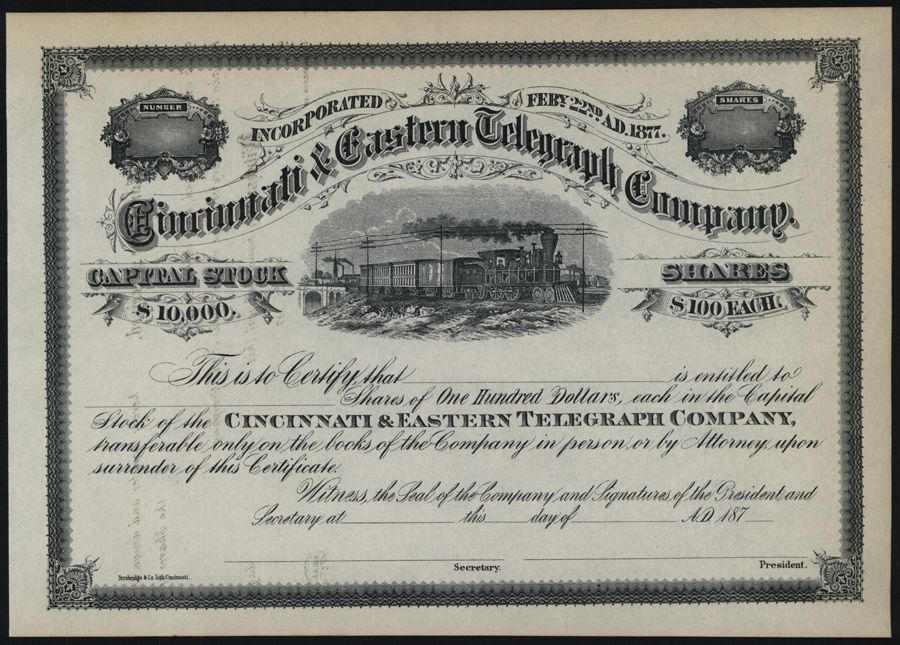 NUMBER
SHARES
INCORPORATED FEBY 22ND A.D. 1877.
Cincinnati & Eastern Telegraph Company.
CAPITAL STOCK
$10,000.
SHARES
$100 EACH.
This is to Certify, that is entitled to
Shares of One Hundred Dollars, each in the Capital
Stock of the CINCINNATI & EASTERN TELEGRAPH COMPANY,
transferable only on the books of the Company in person or by Attorney, upon
surrender of this Certificate.
Witness, the Seal of the Company and Signatures of the President and
Secretary at this day of A.D. 187
Secretary.
President.
Strobridge & Co. Lith. Cincinnati.